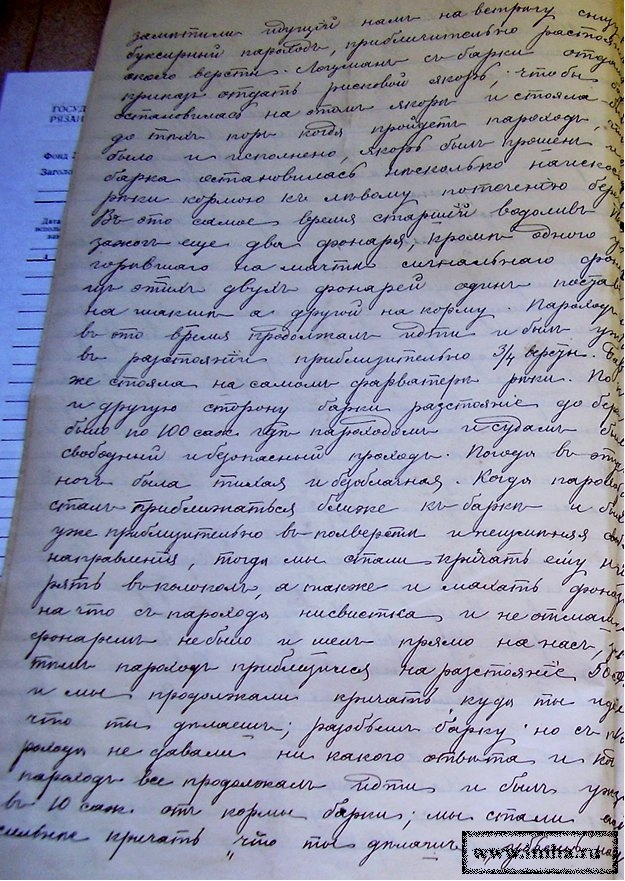 замѣтили идущій намъ на встрѣчу
буксирный пароходъ, приблизительно
около версты. Лоцманъ съ барки
приказ отдать рисковой якорь, чтобы
остановилась на этомъ якорѣ и стояла
до тѣхъ поръ когда пройдетъ пароходъ,
было и исполнено, якорь былъ брошенъ
барка остановилась нѣсколько наискось
рѣки кормою къ лѣвому по теченію
Въ это самое время старшій водоливъ
зажогъ еще два фонаря, кромѣ одного
горѣвшаго на мачтѣ сигнальнаго
изъ этихъ двухъ фонарей одинъ
на а другой на корму. Пароходъ
въ это время продолжалъ идти и былъ
въ разстояніи приблизительно 3/4 версты.
же стояла на самомъ фарватерѣ рѣки. По
и другую сторону барки разстояніе до
было по 100 саж. пароходомъ и судамъ
свободный и безопасный проходъ. Погода въ эту
ночь была тихая и безоблачная. Когда
сталъ приближаться ближе къ баркѣ и
уже приблизительно въ полверсты и неизмѣняя
направленія, тогда мы стали кричать ему
въ колоколъ, а также и махать
на что съ парохода нисвистка и не
фонаремъ не было и шелъ прямо на насъ,
тѣмъ пароходъ приблизился на разстояніе 50
и мы продолжали кричать куда ты
что ты дѣлаешь; разобьешь барку но съ
не давали ни какого отвѣта и
пароходъ все продолжалъ идти и былъ
въ 10 саж. отъ кормы барки; мы стали
кричать „что ты дѣлаешь
ГОСУД
РЯЗАН
Фонд
Заголо
Дата
www.imha.ru